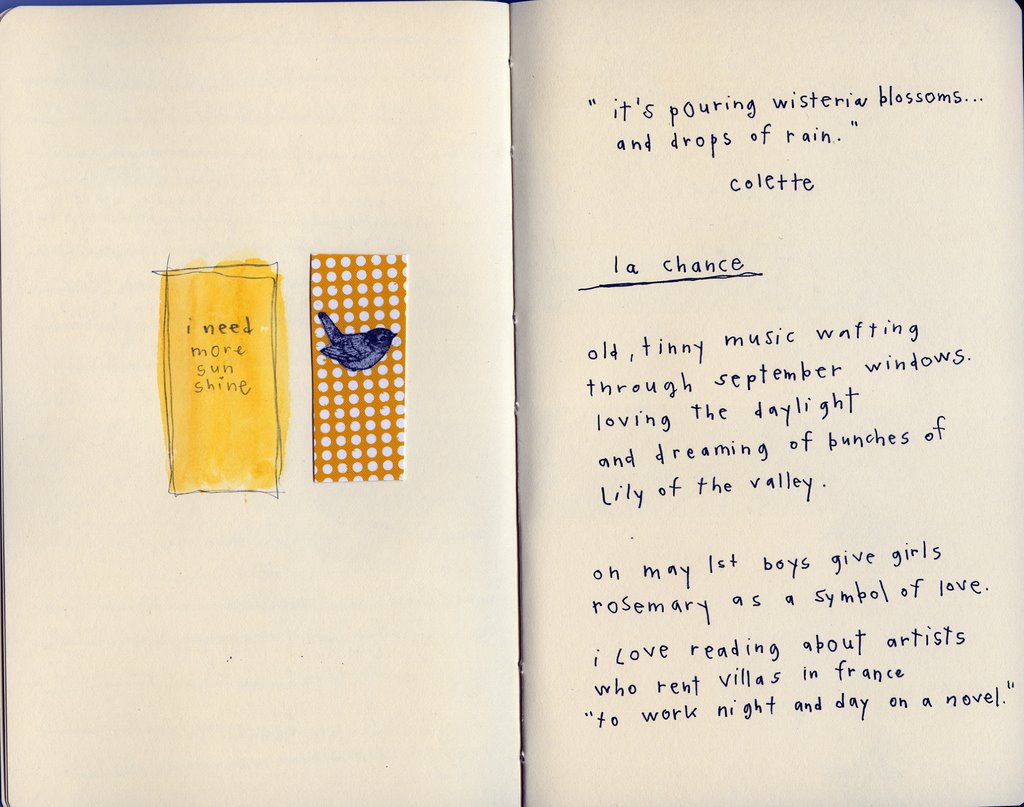 i need
more
sun
shine
"it's pouring wisteria blossoms...
and drops of rain."
colette
la chance
old, tinny music wafting
through september windows.
loving the daylight
and dreaming of bunches of
lily of the valley.
on may 1st boys give girls
rosemary as a symbol of love.
i love reading about artists
who rent villas in france
"to work night and day on a novel."